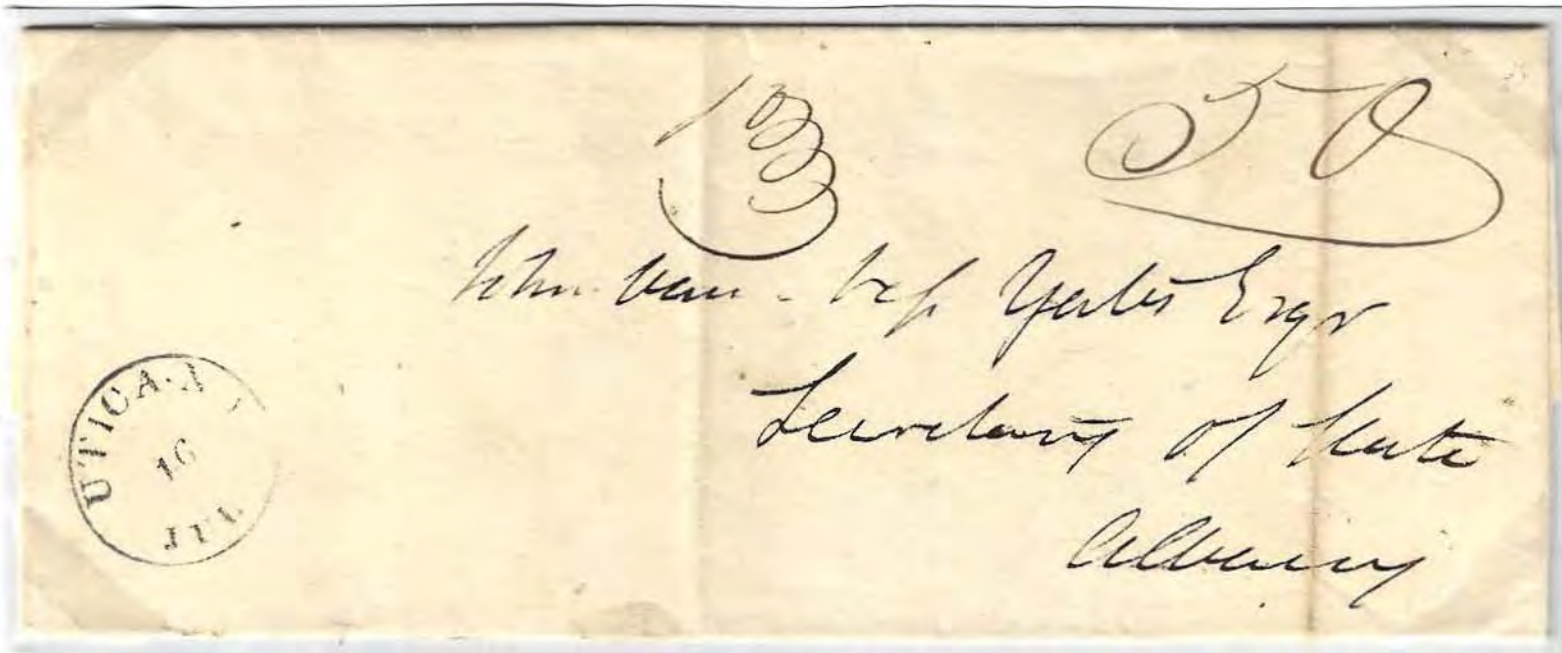 50
John Van Ness Yates Esqr
Secretary of State
Albany
UTICA. N Y
16
JUL